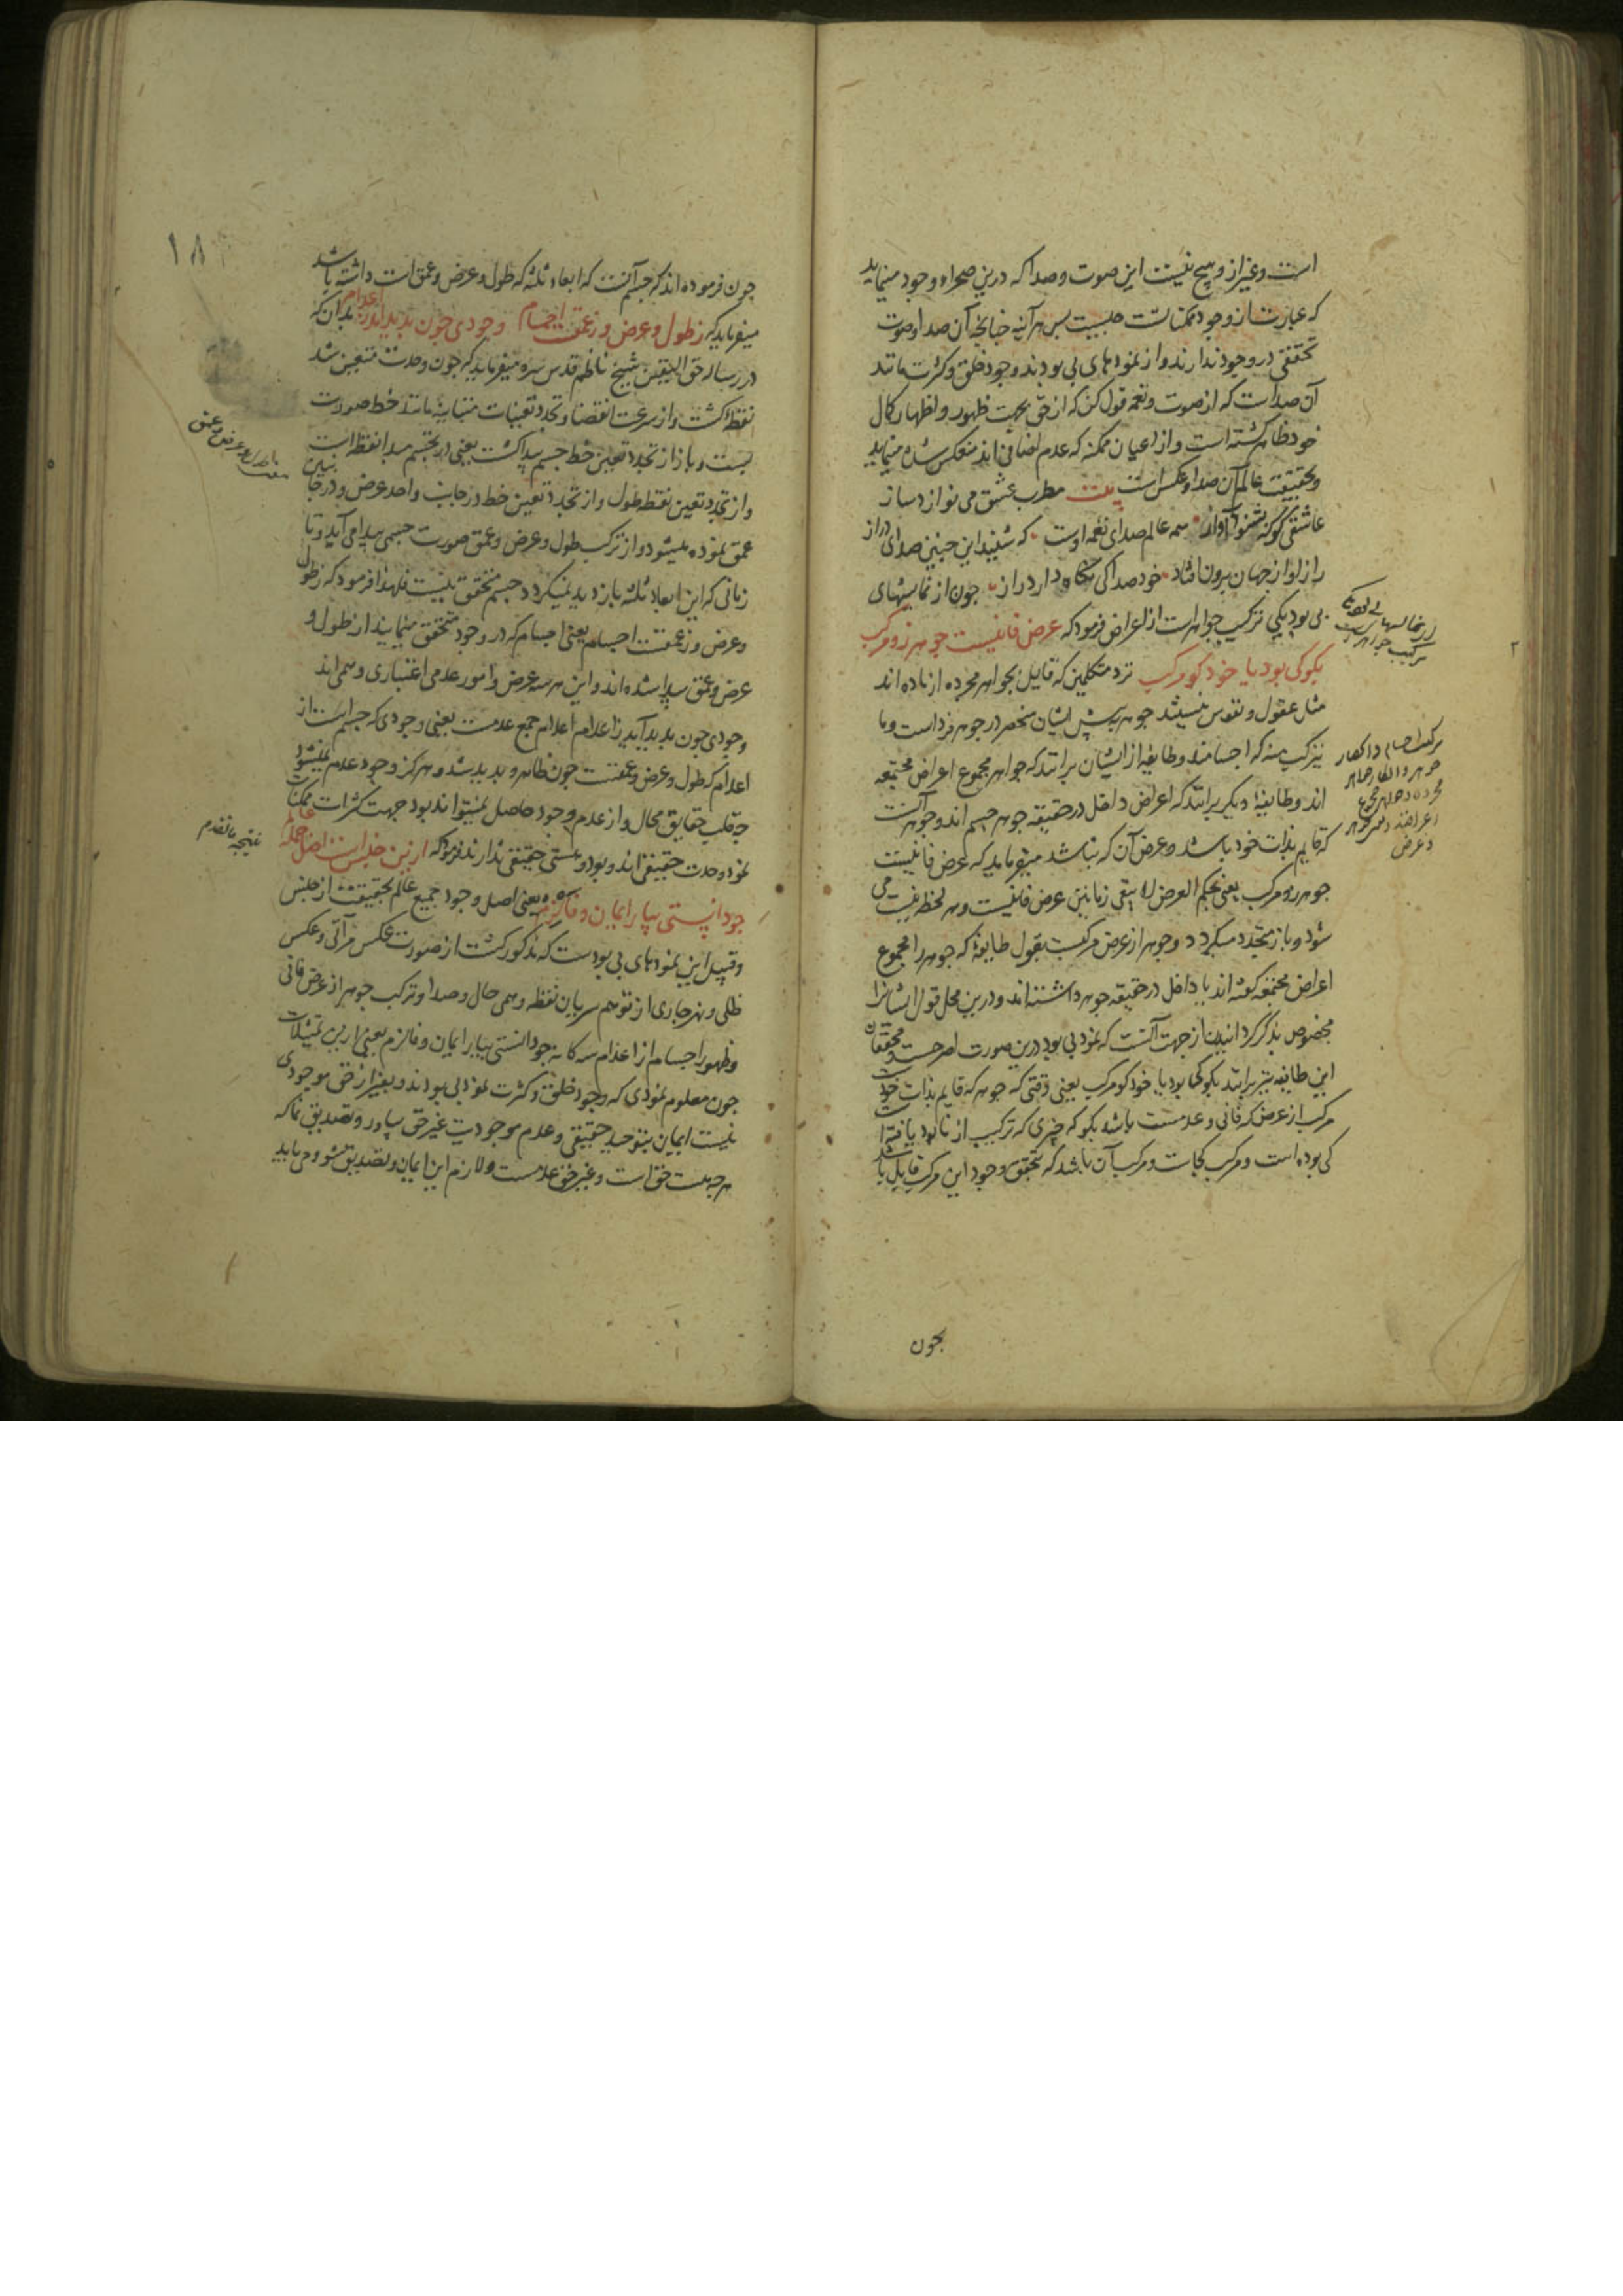 است و غیر از و هیچ نیست این صوت و صدا که درین صحراء وجود مینماید
که عبارت از وجود ممکناتست چیست پس هر آینه چنانچه آن صدا و صوت
تحققی در وجود ندارند و از نمودهای بی بودند وجود خلق و کثرت مانند
آن صداست که از صوت و نغمه قول کن که از حق بجهت ظهور و اظهار کمال
خود ظاهر گشته است و از اعیان ممکنه که عدم اضافی اند منعکس شده مینماید
و بحقیقت عالم آن صدا و عکس است بیت مطرب عشق می نوازد ساز
عاشقی کو که بشنود آواز همه عالم صدای نغمه اوست که شنید این چنین صدای دراز
راز او از جهان برون افتاد خود صدا کی نگاه دارد راز چون از نمایشهای
بی بود یکی ترکیب جواهر است از اعراض فرمود که عرض فانیست جوهر زو مرکب
بگو کی بود یا خود کو مرکب نزد متکلمین که قایل بجواهر مجرده از ماده اند
مثل عقول و نفوس نیستند جوهر پیش ایشان منحصر در جوهر فرد است و ما
یترکب منه که اجسامند و طایفه از ایشان برانند که جواهر مجموع اعراض مجتمعه
اند و طایفهٔ دیگر برانند که اعراض داخل در حقیقه جوهر جسم اند و جوهر آنست
که قایم بذات خود باشد و عرض آن که نباشد میفرماید که عرض فانیست
جوهر زو مرکب یعنی بحکم العرض لا یبقی زمانین عرض فانیست و هر لحظه نیست می
شود و باز متجدد میگردد و جوهر از عرض مرکبست بقول طایفهٔ که جوهر را مجموع
اعراض مجتمعه گفته اند یا داخل در حقیقه جوهر داشته اند و درین محل قول ایشانرا
مخصوص بذکر گردانیدن از جهت آنست که نمود بی بود درین صورت اصرحست و محققان
این طایفه نیز برانند بگو کی بود یا خود کو مرکب یعنی وقتی که جوهر که قایم بذات خود
مرکب از عرض که فانی و عدمست باشد بگو که چیزی که ترکیب از نابود یافته است
کی بوده است و مرکب کجاست و مرکب آن باشد که تحقق وجود این مرکب قایل باشد
چون
چون فرموده اند که جسم آنست که ابعاد ثلثه که طول و عرض و عمق است داشته باشد
میفرماید که ز طول و عرض و ز عمق اجسام وجودی چون پدید آید ز اعدام بدان که
در رساله حق الیقین شیخ ناظم قدس سره میفرماید که چون وحدت متعین شد
نقطه گشت و از سرعت انقضا و تجدد تعینات متباینه مانند خط صورت
بست و باز از تجدد تعین خط جسم پیدا گشت یعنی در تجسم مبدا نقطه است
و از تجدد تعین نقطه طول و از تجدد تعین خط در جانب واحد عرض و در جانبین
عمق نموده میشود و از ترکیب طول و عرض و عمق صورت جسمی پیدا می آید و تا
زمانی که این ابعاد ثلثه بازدید نمیگردد جسم متحقق نیست فلهذا فرمود که ز طول
و عرض و ز عمقست اجسام یعنی اجسام که در وجود متحقق مینمایند از طول و
عرض و عمق پیدا شده اند و این هر سه عرض و امور عدمی اعتباری و همی اند
وجودی چون پدید آید ز اعدام اعدام جمع عدمست یعنی وجودی که جسم است از
اعدام که طول و عرض و عمقست چون ظاهر و پدید شد و هرگز وجود عدم نمیشود
چه قلب حقایق محال و از عدم وجود حاصل نمیتواند بود جهت کثرات ممکنات
نمود وحدت حقیقی اند و بود و هستی حقیقی ندارند فرمود که ازین جنس است اصل جمله عالم
چو دانستی بیار ایمان و فالزم یعنی اصل و وجود جمیع عالم بحقیقت از جنس
و قبیل این نمودهای بی بودست که مذکور گشت از صورت عکس مرآتی و عکس
ظلی و نهر جاری از توهم سریان نقطه و همی حال و صدا و ترکب جوهر از عرض فانی
و ظهور اجسام از اعدام سه گانه چو دانستی بیار ایمان و فالزم یعنی ازین تمثیلات
چون معلوم نمودی که وجود خلق و کثرت نمود بی بودند و بغیر از حق موجودی
نیست ایمان بتوحید حقیقی و عدم موجودیت غیر حق بیاور و تصدیق نما که
هر چه هست حق است و غیر حق عدمست و لازم این ایمان و تصدیق شو و می باید
۱۸
نتیجه ما تقدم